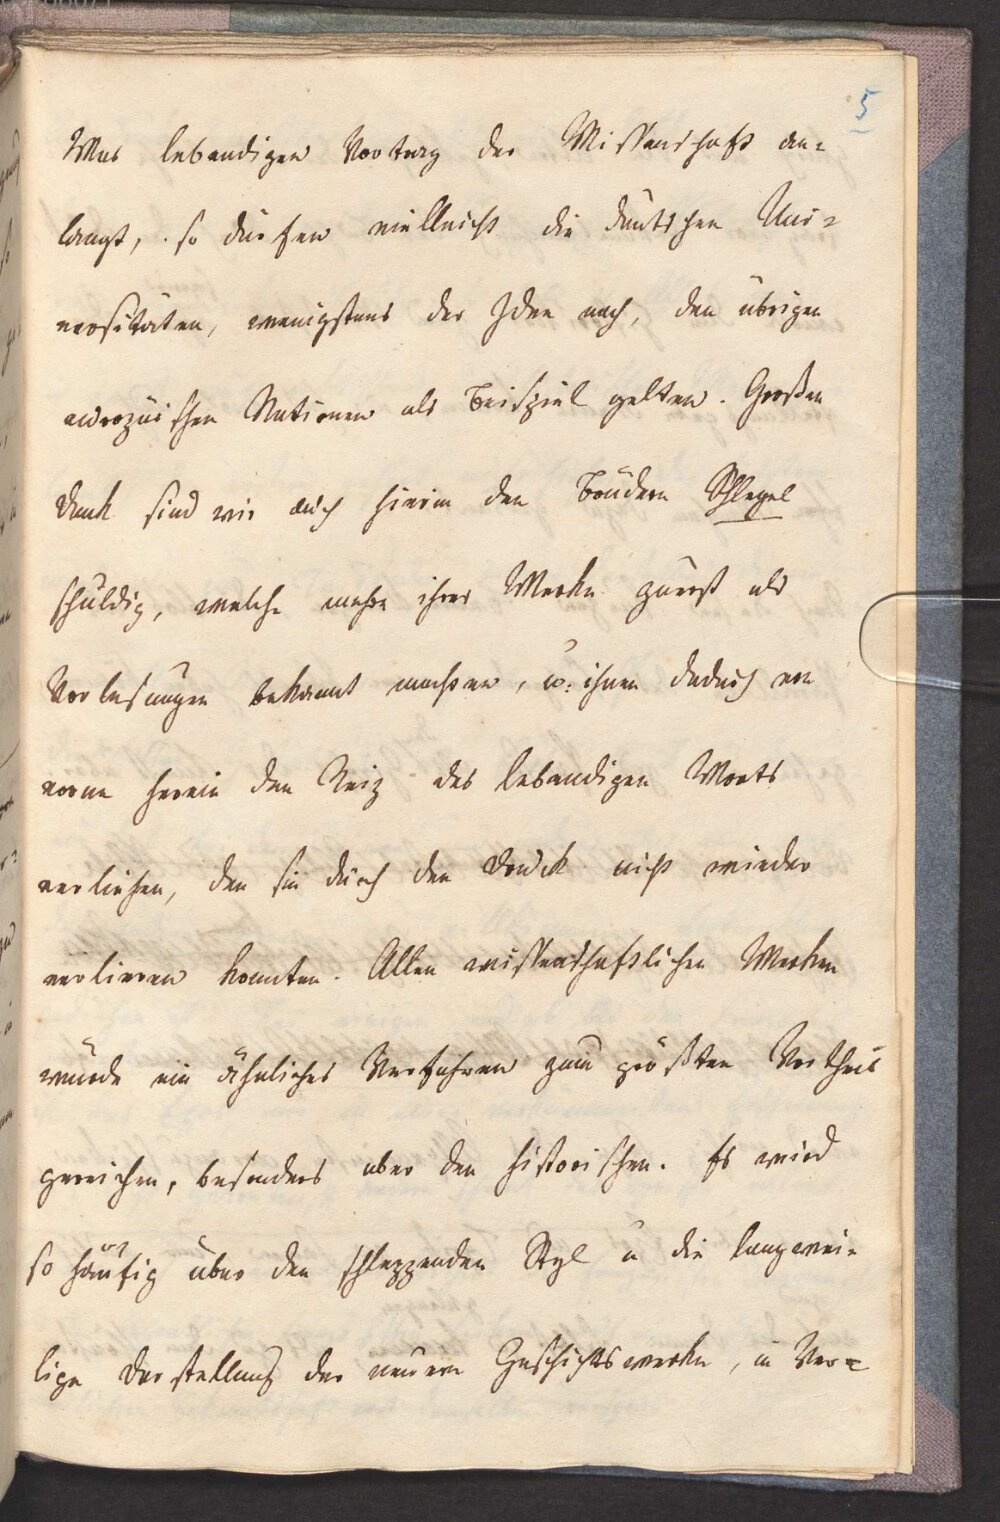 5
Was lebendigen Vortrag der Wissenschaft an-
langt, so dürfen vielleicht die deutschen Uni-
versitäten, wenigstens der Idee nach, den übrigen
europäischen Nationen als Beispiel gelten. Großen
Dank sind wir auch hierin den Brüdern Schlegel
schuldig, welche mehre ihrer Werke zuerst als
Vorlesungen bekannt machten, u: ihnen dadurch von
vorne herein den Reiz des lebendigen Worts
verliehen, den sie durch den Druck nicht wieder
verlieren konnten. Allen wissenschaftlichen Werken
würde ein ähnliches Verfahren zum größten Vortheil
gereichen, besonders aber den historischen. Es wird
so häufig über den schleppenden Styl u die langwei-
lige Darstellung der neuern Geschichtswerke, in Ver-